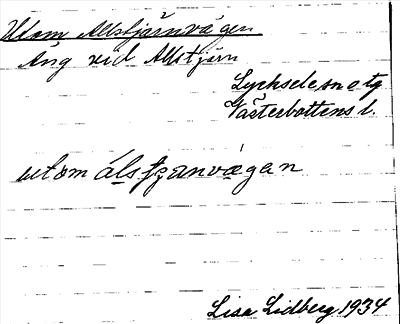 Utom Allstjärnvägen
Äng vid Allstjärn
Lycksele sn o tg
Västerbottens l.
utom álstjanvágan
Lisa Lidberg 1934